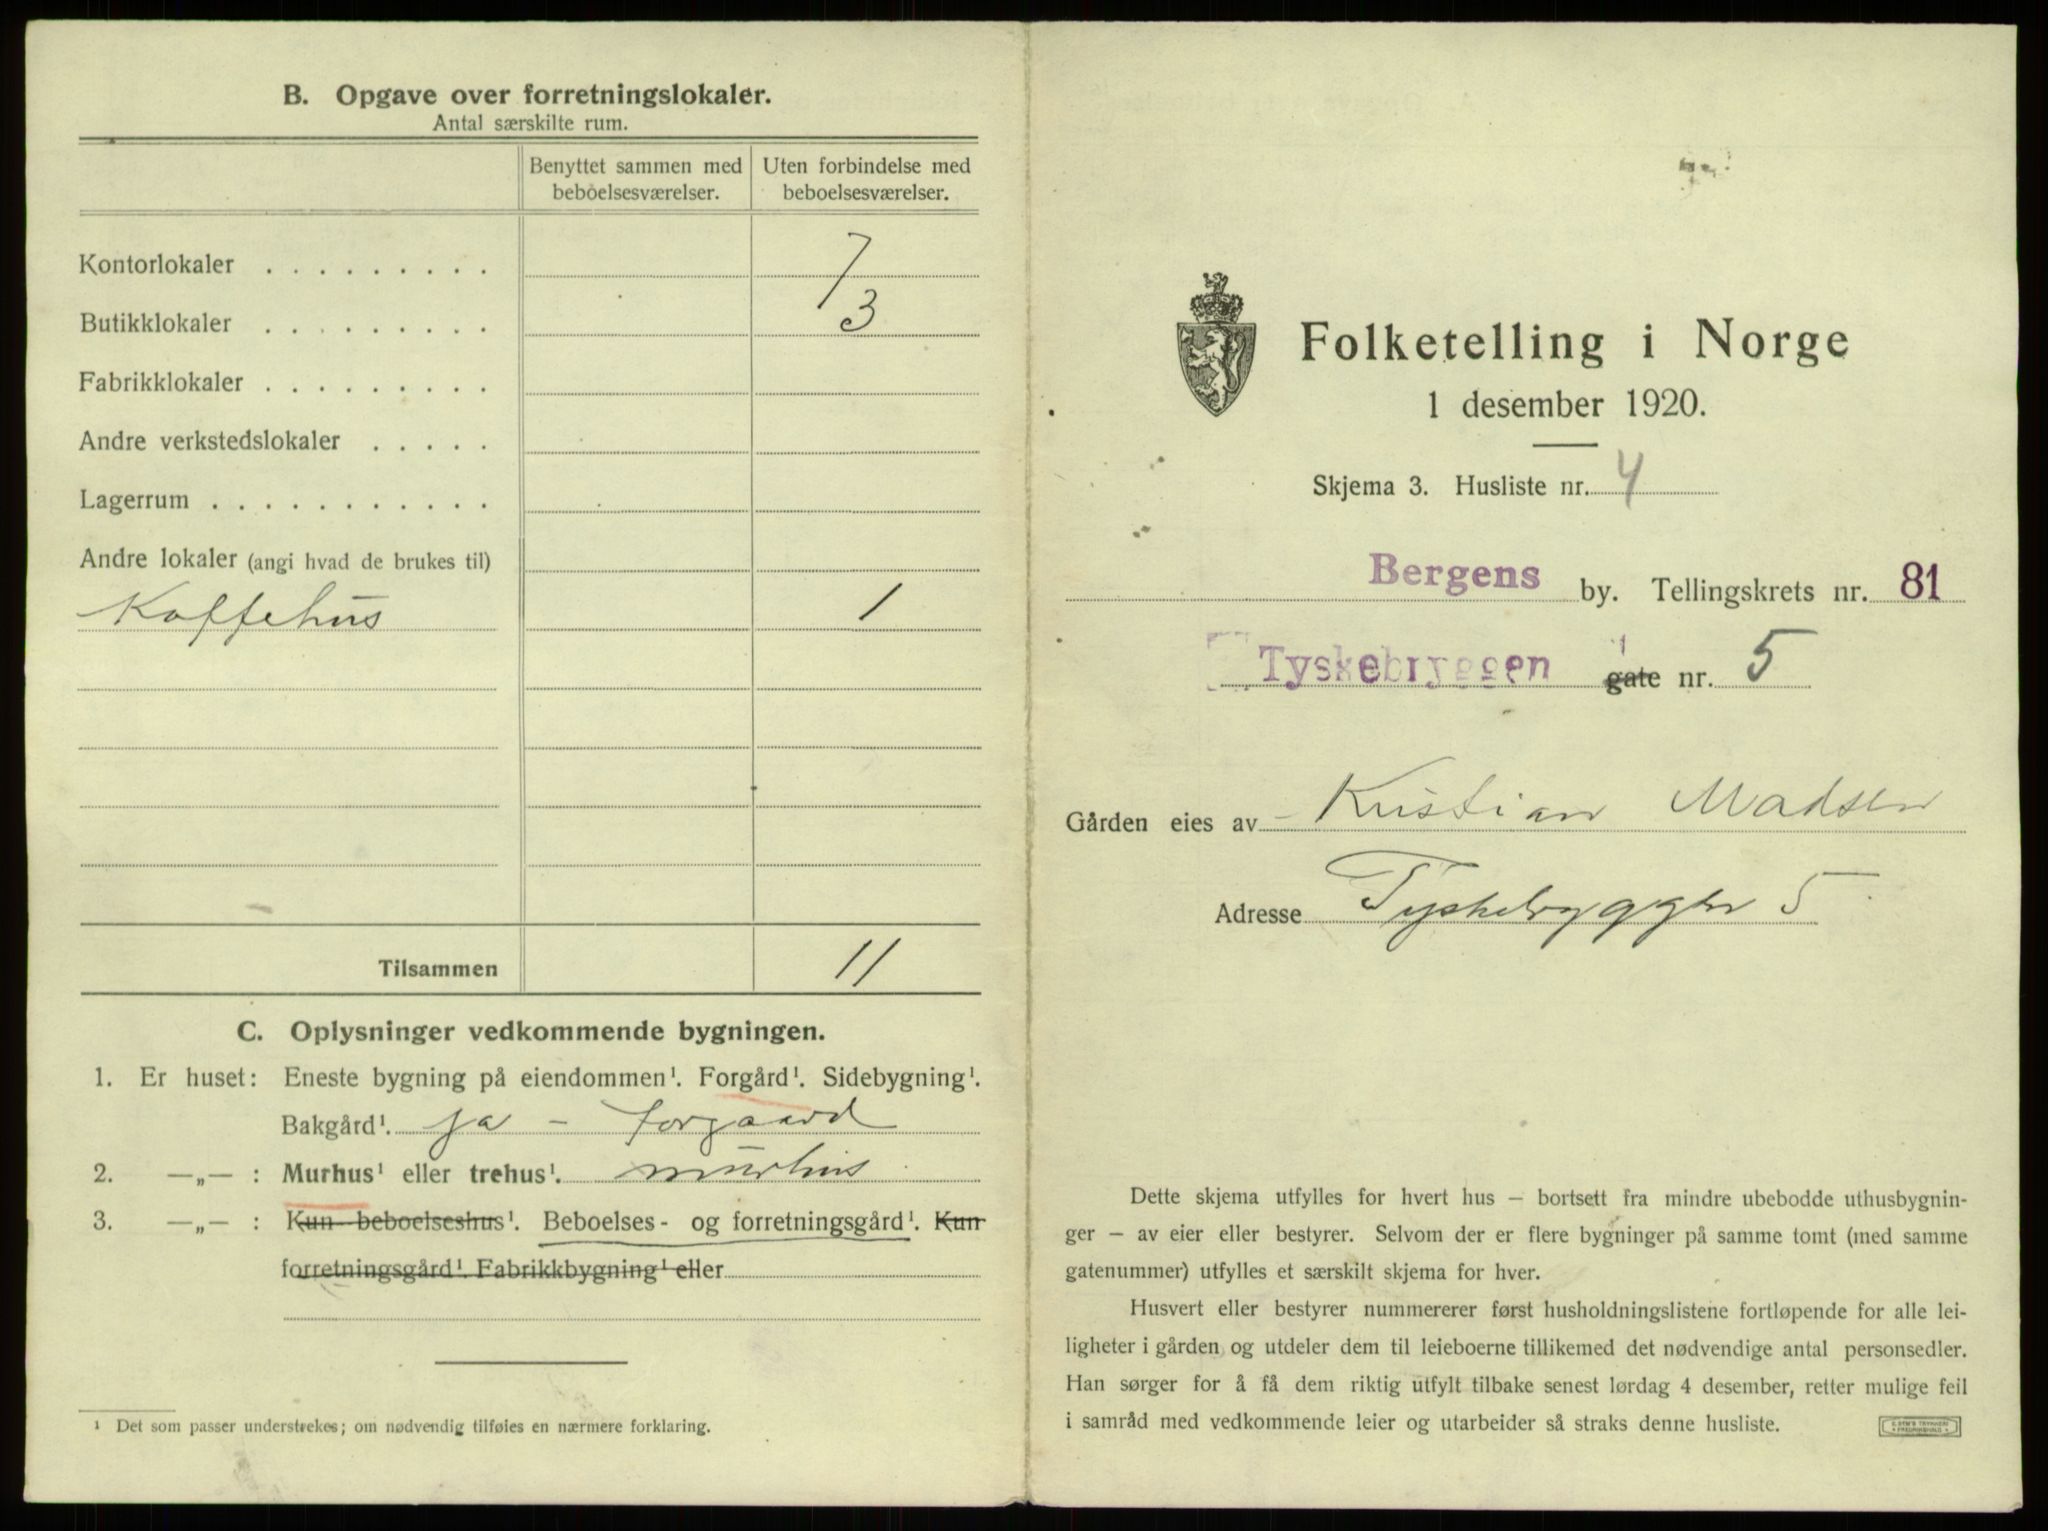 B. Opgave over forretningslokaler.
Antal særskilte rum.
Benyttet sammen med beboelsesværelser.
Uten forbindelse med beboelsesværelser.
Kontorlokaler . . . . . . . . . 7
Butikklokaler . . . . . . . . . 3
Fabrikklokaler . . . . . . . . .
Andre verkstedslokaler . . . . .
Lagerrum . . . . . . . . . . .
Andre lokaler (angi hvad de brukes til)
Kaffehus 1
Tilsammen 11
C. Oplysninger vedkommende bygningen.
1. Er huset: Eneste bygning på eiendommen¹. Forgård¹. Sidebygning¹.
Bakgård¹. ja - forgaard
2. —„— : Murhus¹ eller trehus¹. murhus
3. —„— : Kun beboelseshus¹. Beboelses- og forretningsgård¹. Kun
forretningsgård¹. Fabrikkbygning¹ eller
¹ Det som passer understrekes; om nødvendig tilføies en nærmere forklaring.
Folketelling i Norge
1 desember 1920.
Skjema 3. Husliste nr. 4
Bergens by. Tellingskrets nr. 81
Tyskebryggen gate nr. 5
Gården eies av Kristian Madsen
Adresse Tyskebryggen 5
Dette skjema utfylles for hvert hus – bortsett fra mindre ubebodde uthusbygnin-
ger – av eier eller bestyrer. Selvom der er flere bygninger på samme tomt (med samme
gatenummer) utfylles et særskilt skjema for hver.
Husvert eller bestyrer nummererer først husholdningslistene fortløpende for alle lei-
ligheter i gården og utdeler dem til leieboerne tillikemed det nødvendige antal personsedler.
Han sørger for å få dem riktig utfylt tilbake senest lørdag 4 desember, retter mulige feil
i samråd med vedkommende leier og utarbeider så straks denne husliste.